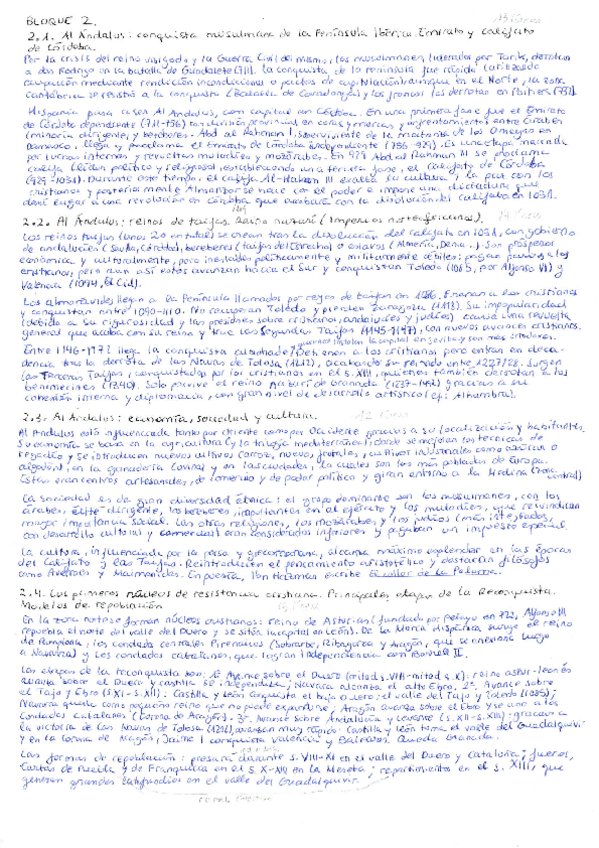 BLOQUE 2.
2.1. Al Ándalus: conquista musulmana de la Península Ibérica. Emirato y califato
de Córdoba.
Por la crisis del reino visigodo y la Guerra Civil del mismo, los musulmanes, liderados por Tarik, derrotan
a don Rodrigo en la batalla de Guadalete (711). La conquista de la península fue rápida
mediante rendición incondicional o pactos de capitulación) aunque en el Norte, la zona
Cantábrica se resistió a la conquista (Batalla de Covadonga) y los francos los derrotan en Poitiers (732).
Hispania pasa a ser Al Ándalus, con capital en Córdoba. En una primera fase fue el Emirato
de Córdoba dependiente (711-756) con división provincial en coras y marcas y enfrentamientos entre árabes
(minoría dirigente) y bereberes. Abd al Rahman I, superviviente de la matanza de los Omeyas en
Damasco, llega y proclama el Emirato de Córdoba independiente (756-929). Es una etapa marcada
por luchas internas y revueltas muladíes y mozárabes. En 929 Abd al Rahman III se proclama
califa (líder político y religioso), estableciendo una tercera fase, el Califato de Córdoba
(929-1031). Durante este tiempo, el califa Al-Hakam II exalta su cultura y la paz con los
cristianos y posteriormente Almanzor se hace con el poder e impone una dictadura que
dará lugar a una revolución en Córdoba que acabaría con la disolución del Califato en 1031.
2.2. Al Ándalus: reinos de taifas. Reino nazarí (Imperios norteafricanos).
Los reinos taifas (unos 20 en total) se crean tras la disolución del califato en 1031, con gobierno
de andalucíes (Sevilla, Córdoba), bereberes (taifas del Estrecho) o eslavos (Almería, Denia...). Son prósperos
económica y culturalmente, pero inestables políticamente y militarmente débiles: pagan parias a los
cristianos, pero aun así estos avanzan hacia el Sur y conquistan Toledo (1085, por Alfonso VI) y
Valencia (1094, El Cid).
Los almorávides llegan a la Península llamados por reyes de taifas en 1086. Frenan a los cristianos
y conquistan entre 1090-1110. No recuperan Toledo y pierden Zaragoza (1118). Su impopularidad
(debido a su rigurosidad y las presiones sobre cristianos, andalusíes y judíos) causa una revuelta
general que acaba con su reino y trae las Segundas Taifas (1145-1147), con nuevos avances cristianos.
Entre 1146-1171 llega la conquista almohade. Detienen a los cristianos pero entran en deca-
dencia tras la derrota de las Navas de Tolosa (1212), acabando su reinado entre 1227/28. Surgen
las Terceras Taifas, conquistadas por los cristianos en el s. XIII, quienes también derrotan a los
benimerines (1340). Solo pervive el reino Nazarí de Granada (1237-1492) gracias a su
cohesión interna y diplomacia, con gran nivel de desarrollo artístico (ej: Alhambra).
2.3. Al Ándalus: economía, sociedad y cultura.
Al Ándalus está influenciada tanto por Oriente como por Occidente gracias a su localización y habitantes.
Su economía se basa en la agricultura (y la trilogía mediterránea) donde se mejoran las técnicas de
regadío y se introducen nuevos cultivos (arroz, nuevos frutales, cultivos industriales como
algodón), en la ganadería (ovina) y en las ciudades, las cuales son las más pobladas de Europa.
Estas eran centros artesanales, de comercio y de poder político y giran entorno a la Medina (zoco central)
La sociedad es de gran diversidad étnica: el grupo dominante son los musulmanes, con los
árabes, élite dirigente, los bereberes, importantes en el ejército y los muladíes, que reivindican
mayor importancia social. Las otras religiones, los mozárabes y los judíos (más integrados,
con desarrollo cultural y comercial) eran considerados inferiores y pagaban un impuesto especial.
La cultura, influenciada por la persa y grecorromana, alcanza máximo esplendor en las épocas
del Califato y las Taifas. Reintroducen el pensamiento aristotélico y destacan filósofos
como Averroes y Maimónides. En poesía, Ibn Hazm escribe El collar de la Paloma.
2.4. Los primeros núcleos de resistencia cristiana. Principales etapas de la Reconquista.
Modelos de repoblación
En la zona norte se forman núcleos cristianos: reino de Asturias (fundado por Pelayo en 722, Alfonso III
repuebla el norte del valle del Duero y se sitúa la capital en León). De la Marca Hispánica surge el reino
de Pamplona, los condados centrales Pirenaicos (Sobrarbe, Ribagorza y Aragón, que se anexionó luego
a Navarra) y los condados catalanes, que logran independencia con Borrell II.
Las etapas de la reconquista son: 1º. Avance sobre el Duero (mitad s. VIII-mitad s. X): reino astur-leonés
avanza sobre el Duero y Castilla se independiza; Navarra alcanza el alto Ebro. 2º. Avance sobre
el Tajo y Ebro (s. XI - s. XII): Castilla y León conquista el bajo Duero y el valle del Tajo y Toledo (1085);
Navarra queda como pequeño reino que no puede expandirse, Aragón avanza sobre el Ebro y se une a los
Condados Catalanes (Corona de Aragón). 3º. Avance sobre Andalucía y Levante (s. XII-s. XIII): gracias a
la victoria de las Navas de Tolosa (1212), avanzan muy rápido: Castilla y León toma el valle del Guadalquivir
y en la Corona de Aragón, Jaime I conquista Valencia y Baleares. Queda Granada.
Las formas de repoblación: presura, durante s. VIII-XI en el valle del Duero y Cataluña; fueros,
Cartas de Puebla y de Franquicia en el s. X-XIV en la Meseta; repartimientos en el s. XIII, que
generan grandes latifundios en el valle del Guadalquivir.